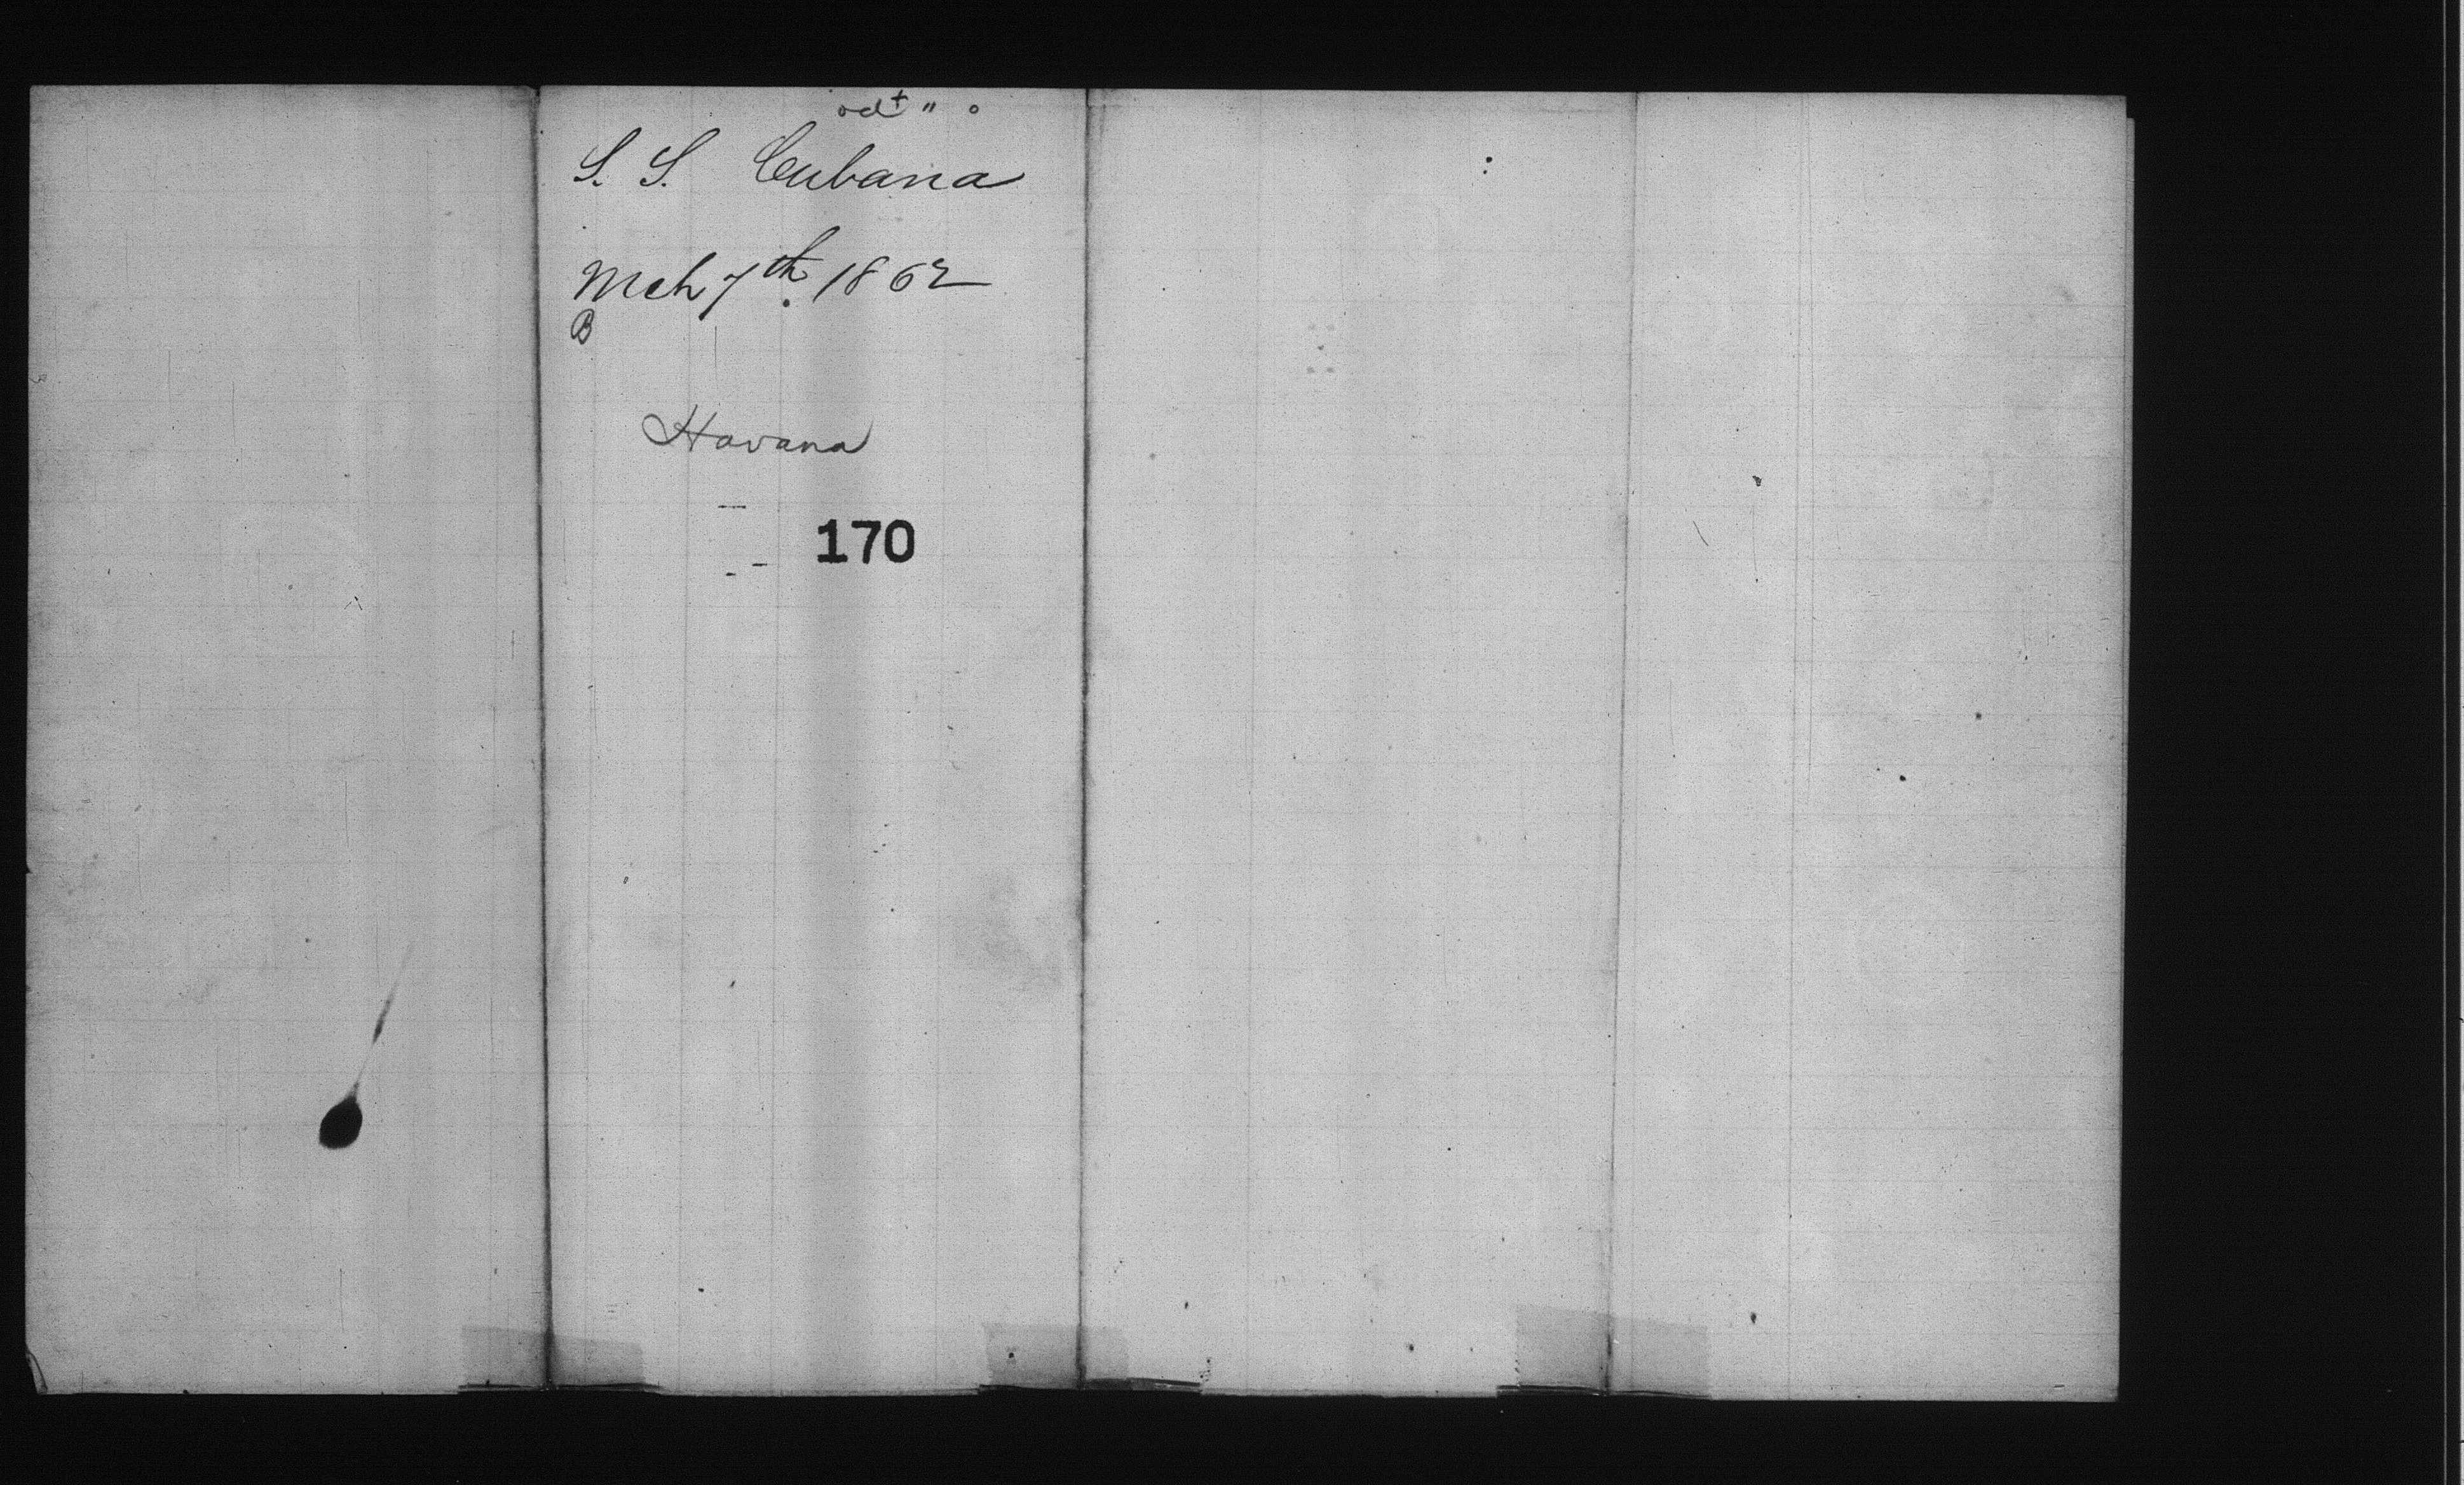 S. S. Cubana
Mch 7th 1862
B
Havana
170